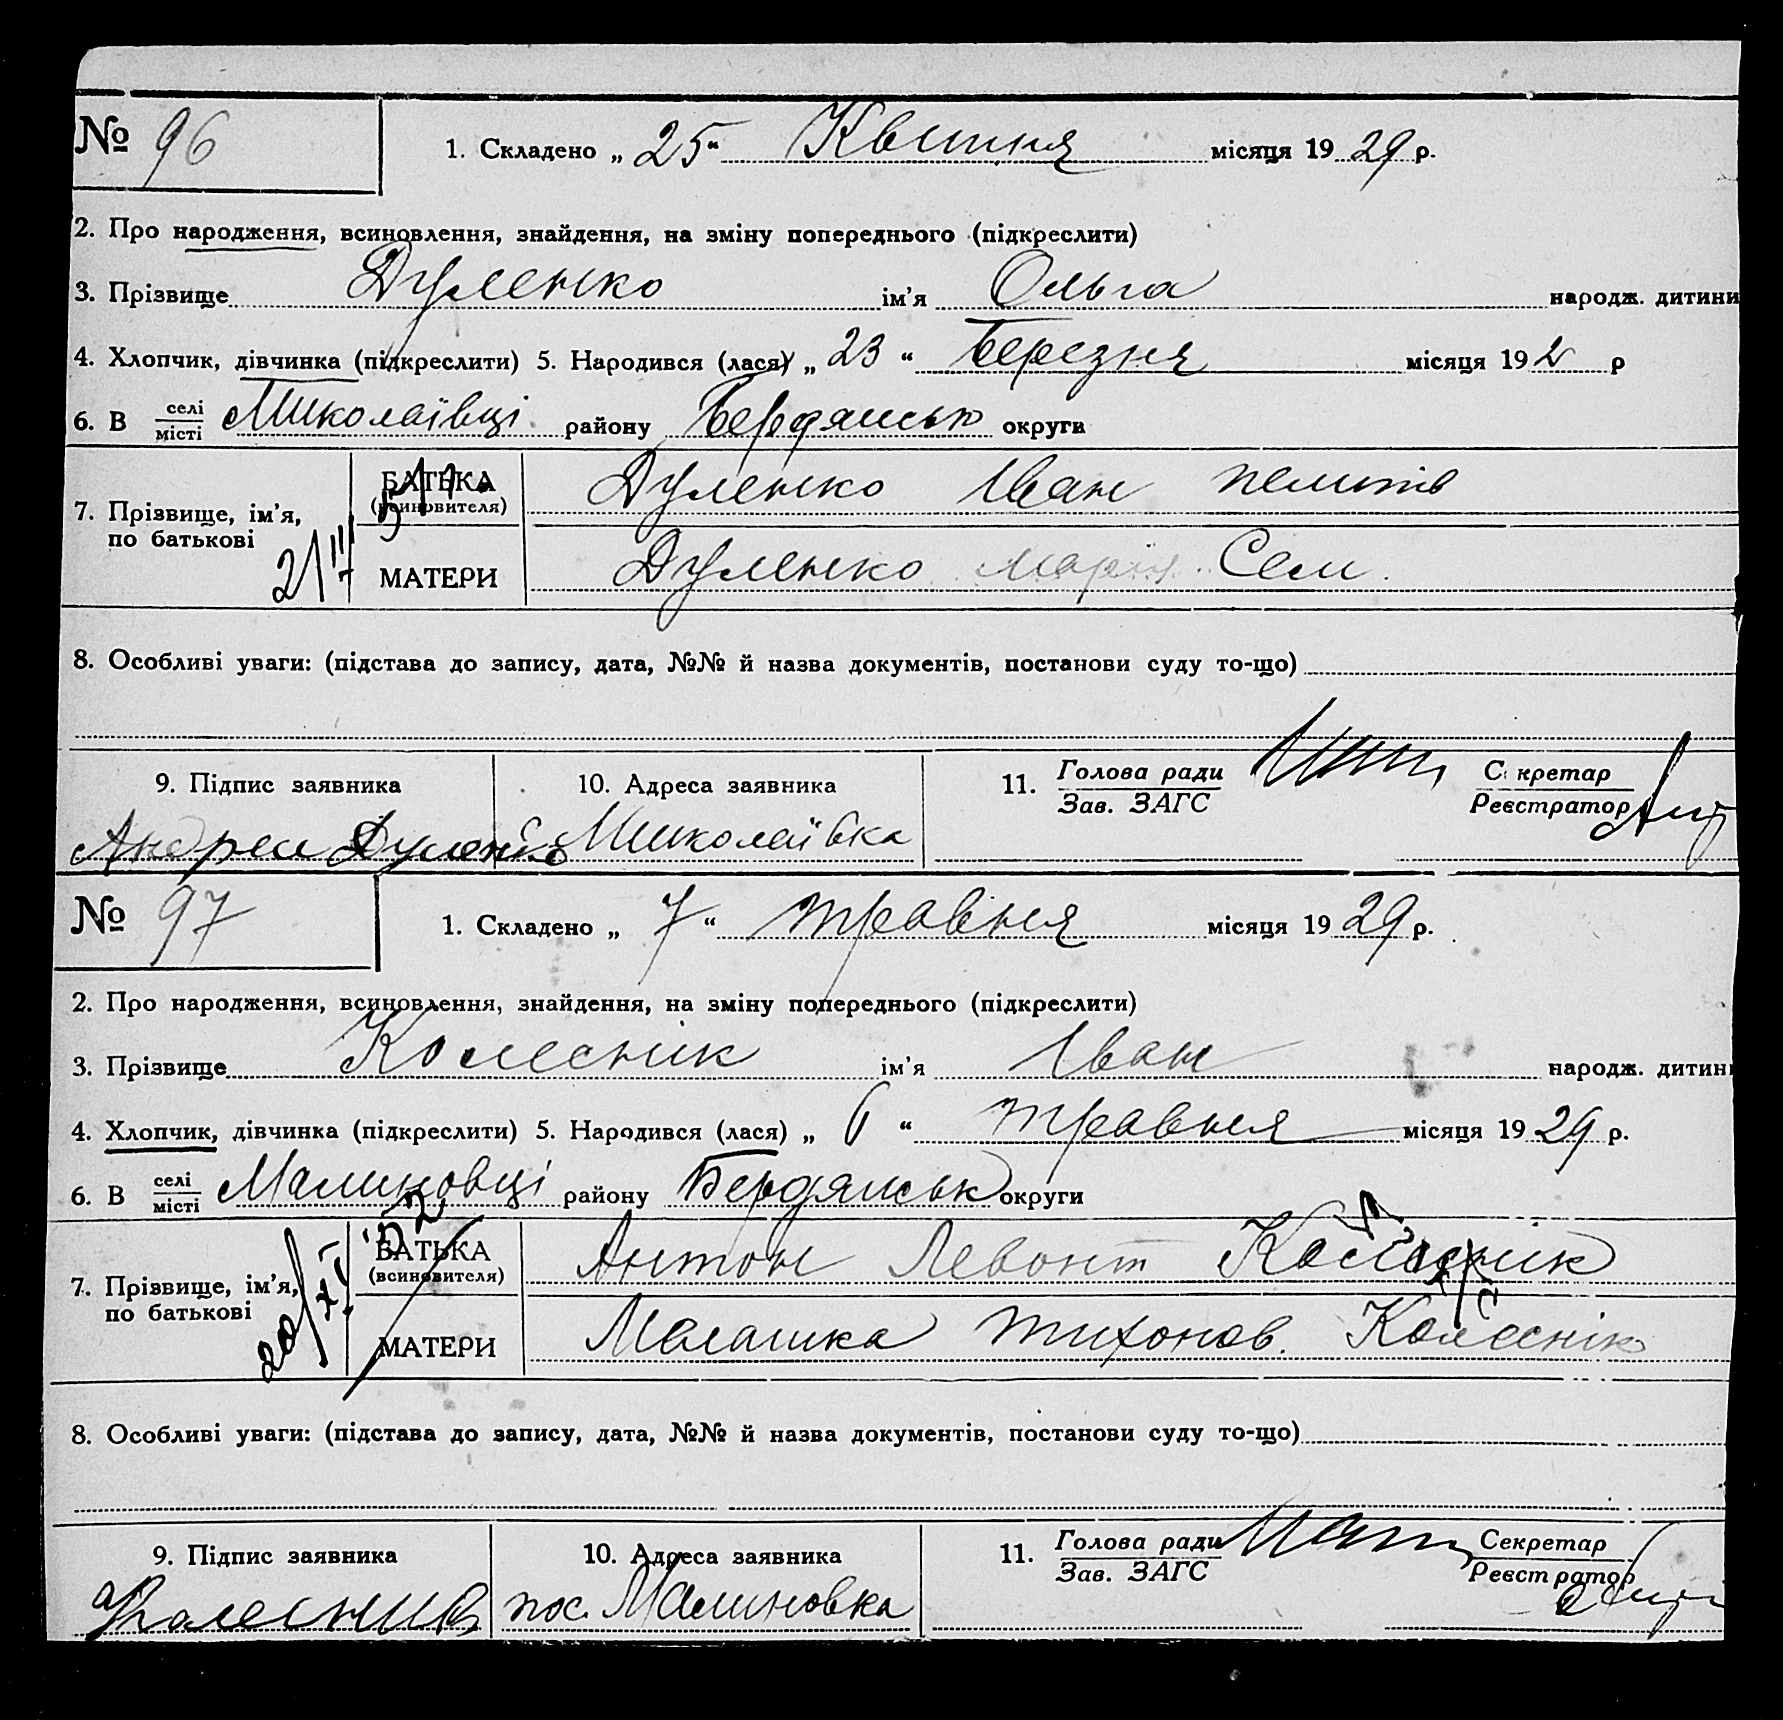 № 96
1. Складено „ 25 “ Квітня місяця 19 29 р.
2. Про народження, всиновлення, знайдення, на зміну попереднього (підкреслити)
3. Прізвище Дуленко ім’я Ольга народж. дитини
4. Хлопчик, дівчинка (підкреслити) 5. Народився (лася) „ 23 “ Березня місяця 192 р
6. В селі місті Миколаївці району Бердянськ округи
7. Прізвище, ім’я, по батькові
БАТЬКА (всиновителя) Дуленко Іван
МАТЕРИ Дуленко Марія Сем.
8. Особливі уваги: (підстава до запису, дата, №№ й назва документів, постанови суду то-що)
9. Підпис заявника 10. Адреса заявника 11. Голова ради Зав. ЗАГС Секретар Реєстратор
Андрей Дуленко Миколаївка
№ 97
1. Складено „ 7 “ травня місяця 19 29 р.
2. Про народження, всиновлення, знайдення, на зміну попереднього (підкреслити)
3. Прізвище Колесник ім’я Іван народж. дитини
4. Хлопчик, дівчинка (підкреслити) 5. Народився (лася) „ 6 “ травня місяця 19 29 р.
6. В селі місті Малиновці району Бердянськ округи
7. Прізвище, ім’я, по батькові
БАТЬКА (всиновителя) Антон Левонт Колесник
МАТЕРИ Малашка тихонов. Колеснік
8. Особливі уваги: (підстава до запису, дата, №№ й назва документів, постанови суду то-що)
9. Підпис заявника 10. Адреса заявника 11. Голова ради Зав. ЗАГС Секретар Реєстратор
пос. Малиновка